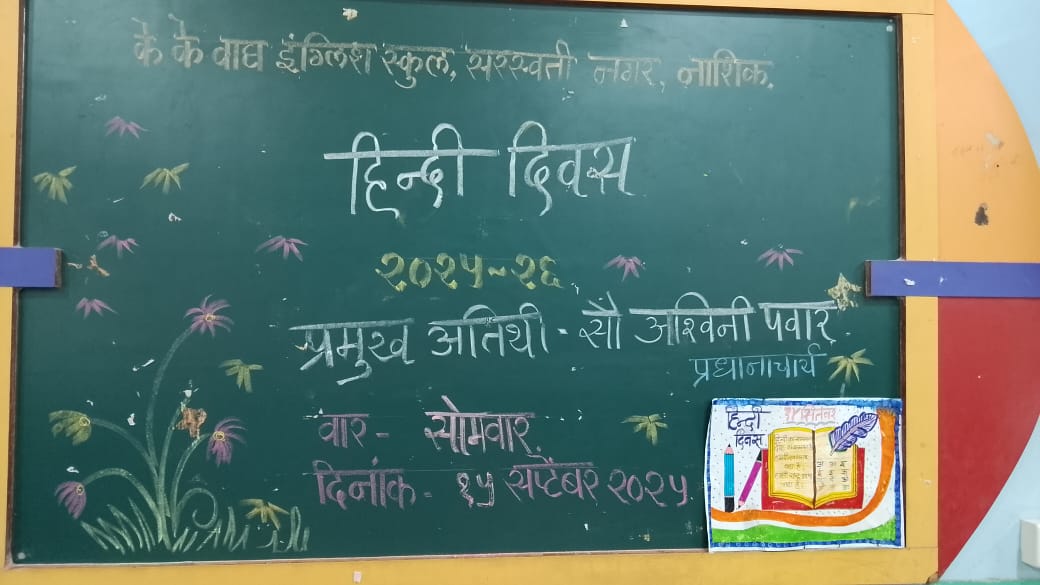 के के वाघ इंग्लिश स्कुल, सरस्वती नगर, नाशिक.
हिन्दी दिवस
२०२५-२६
प्रमुख अतिथी - सौ अश्विनी पवार.
प्रधानाचार्य
वार - सोमवार.
दिनांक - १५ सप्टेंबर २०२५
हिन्दी
दिवस
१४ सितंबर